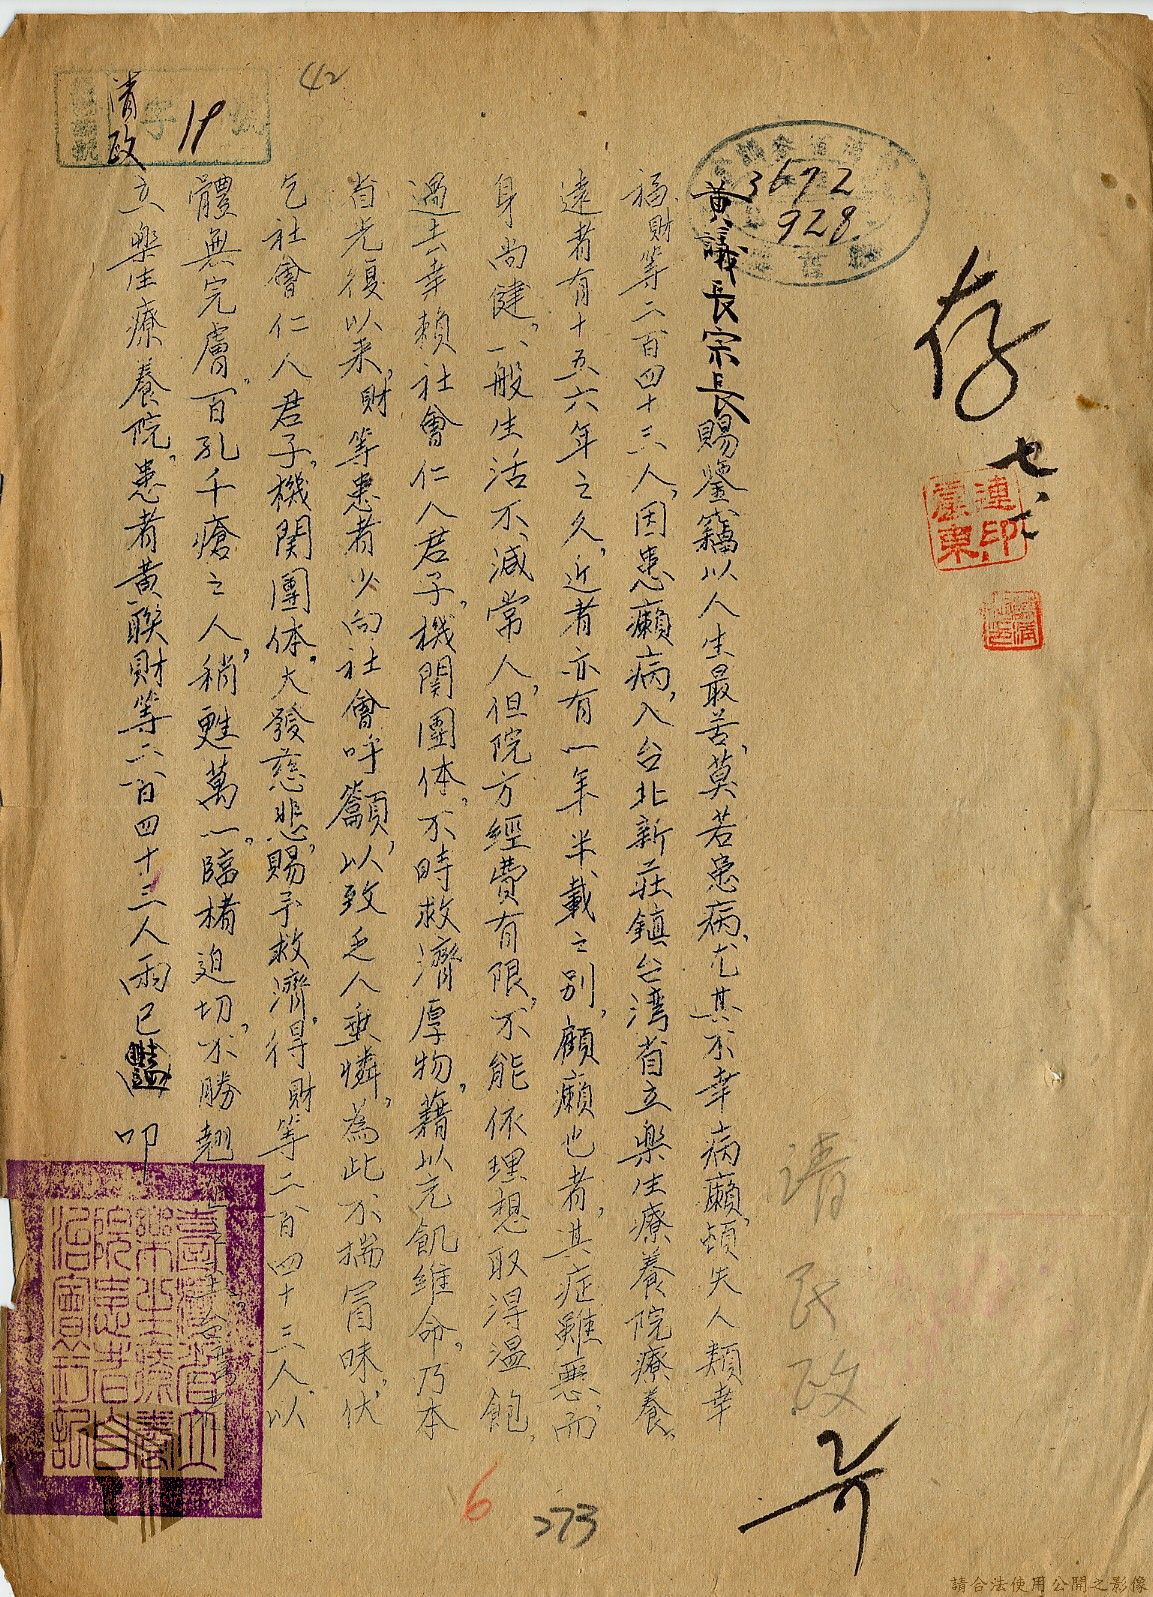 42
清政
字 19 號
3672
928
存
七、六
連
印
黃議長宗長賜鑒竊以人生最苦、莫若患病、尤其不幸病癩、頓失人類幸
福、財等二百四十三人、因患癩病、入台北新莊鎮台湾省立樂生療養院療養。
遠者有十五六年之久、近者亦有一年半載之別、顧癩也者、其症雖惡、而
身尚健、一般生活不減常人、但院方經費有限、不能依理想取得溫飽、
過去幸賴社會仁人君子、機関團体、不時救濟厚物、藉以充飢維命、乃本
省光復以来、財等患者少向社會呼籲、以致乏人垂憐、為此不揣冒昧、伏
乞社會仁人君子、機関團体。大發慈悲、賜予救濟、得財等二百四十三人、以
體無完膚、百孔千瘡之人、稍甦萬一、臨楮迫切、不勝翹
立樂生療養院、患者黃聯財等二百四十三人 叩
臺灣省立
樂生療養
院患者自
治會鈐記
請民政
6
273
請合法使用公開之影像